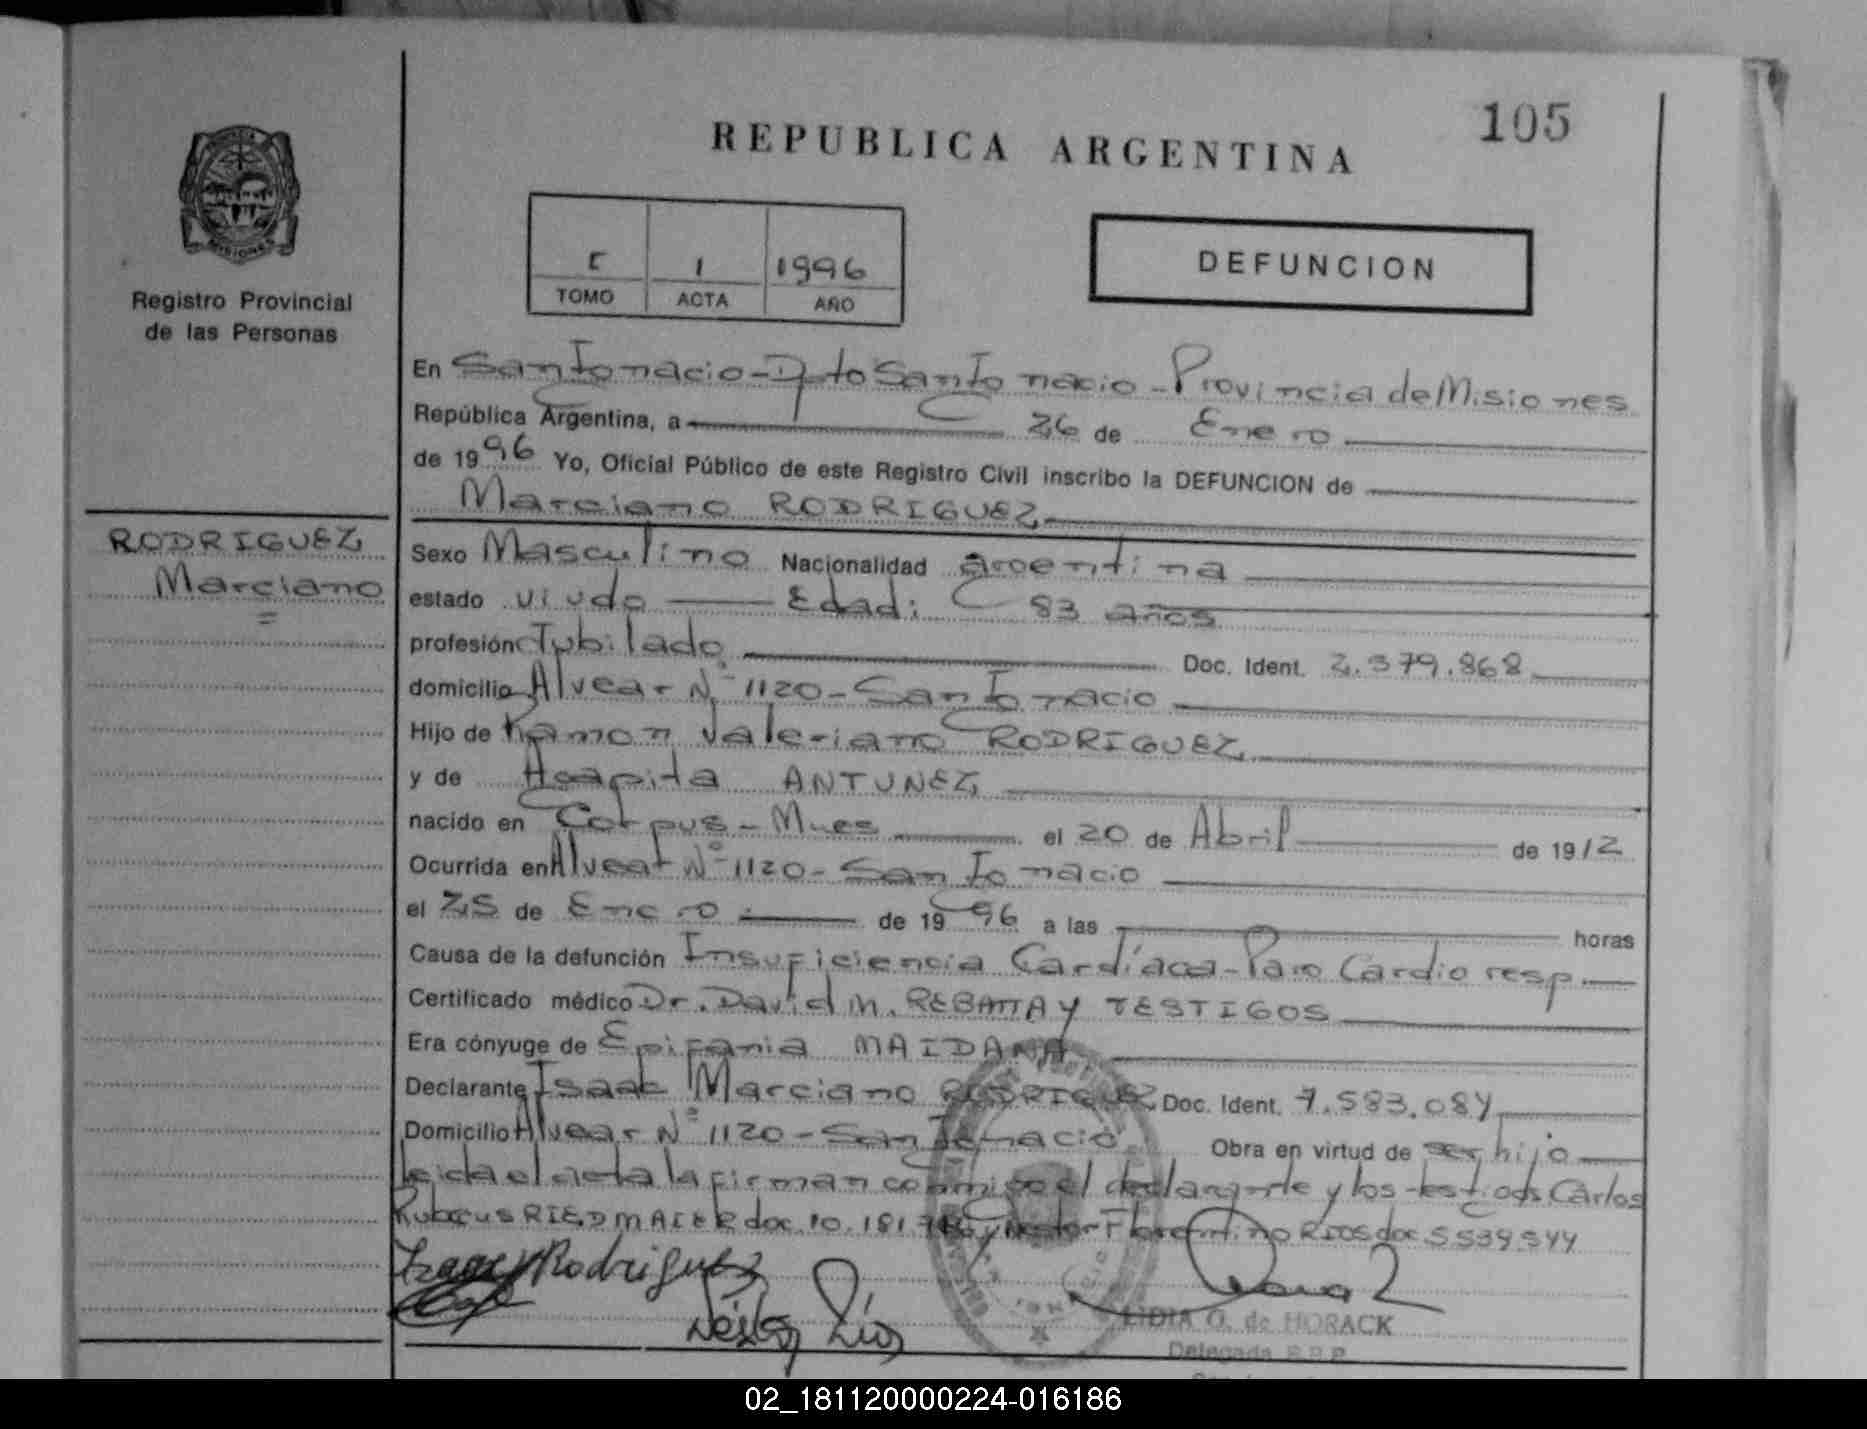 105
REPUBLICA ARGENTINA
PROVINCIA
MISIONES
Registro Provincial
de las Personas
1 1996
TOMO ACTA AÑO
DEFUNCION
En San Ignacio - Dpto San Ignacio - Provincia de Misiones
República Argentina, a 26 de Enero
de 1996 Yo, Oficial Público de este Registro Civil inscribo la DEFUNCION de
Marciano RODRIGUEZ
RODRIGUEZ
Marciano
=
Sexo Masculino Nacionalidad argentina
estado viudo Edad: 83 años
profesión Jubilado Doc. Ident. 2.579.868
domicilio Alvear Nº 1120 - San Ignacio
Hijo de Ramon Valeriano RODRIGUEZ
y de Agapita ANTUNEZ
nacido en Corpus - Mnes el 20 de Abril de 1912
Ocurrida en Alvear Nº 1120 - San Ignacio
el 25 de Enero de 1996 a las horas
Causa de la defunción Insuficiencia Cardíaca - Paro Cardio resp.
Certificado médico Dr. David M. REBATTA y TESTIGOS
Era cónyuge de Epifania MAIDANA
Declarante Isaac Marciano RODRIGUEZ Doc. Ident. 7.583.084
Domicilio Alvear Nº 1120 - San Ignacio Obra en virtud de ser hijo
leida el acta la firman conmigo el declarante y los testigos Carlos
RIEDMAIER doc. 10.181. y Nestor Florentino RIOS doc 5539544
Rodriguez
Néstor Ríos
LIDIA O. de HORACK
Delegada R.P.P.
02_181120000224-016186